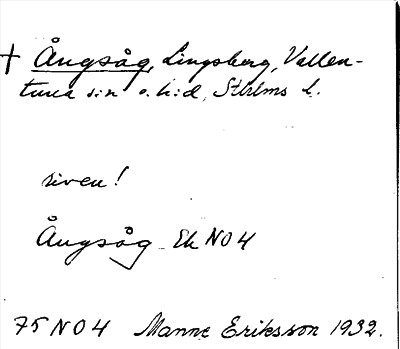 † Ångsåg, Lingsberg, Vallen-
tuna s:n o. h:d, Sthlms L.
riven!
Ångsåg Ek NO4
75 NO4 Manne Eriksson 1932.